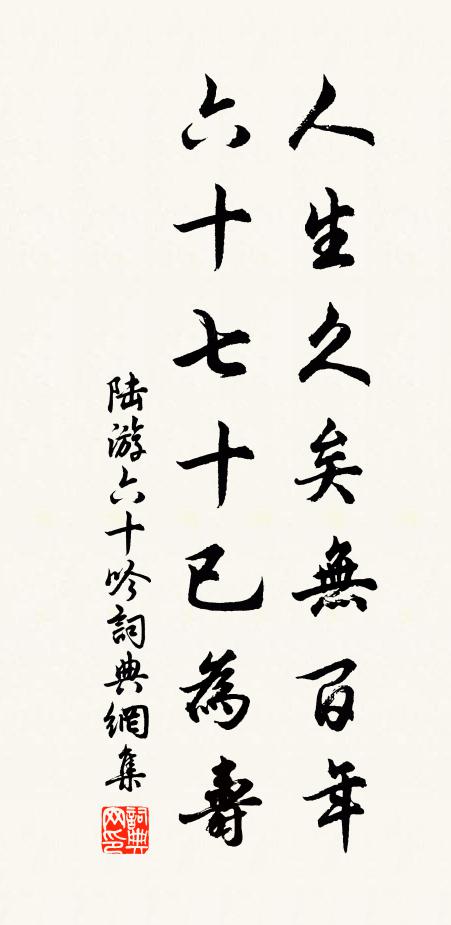 人生久矣無百年
六十七十已為壽
陆游六十吟詞典網集
詞典网印